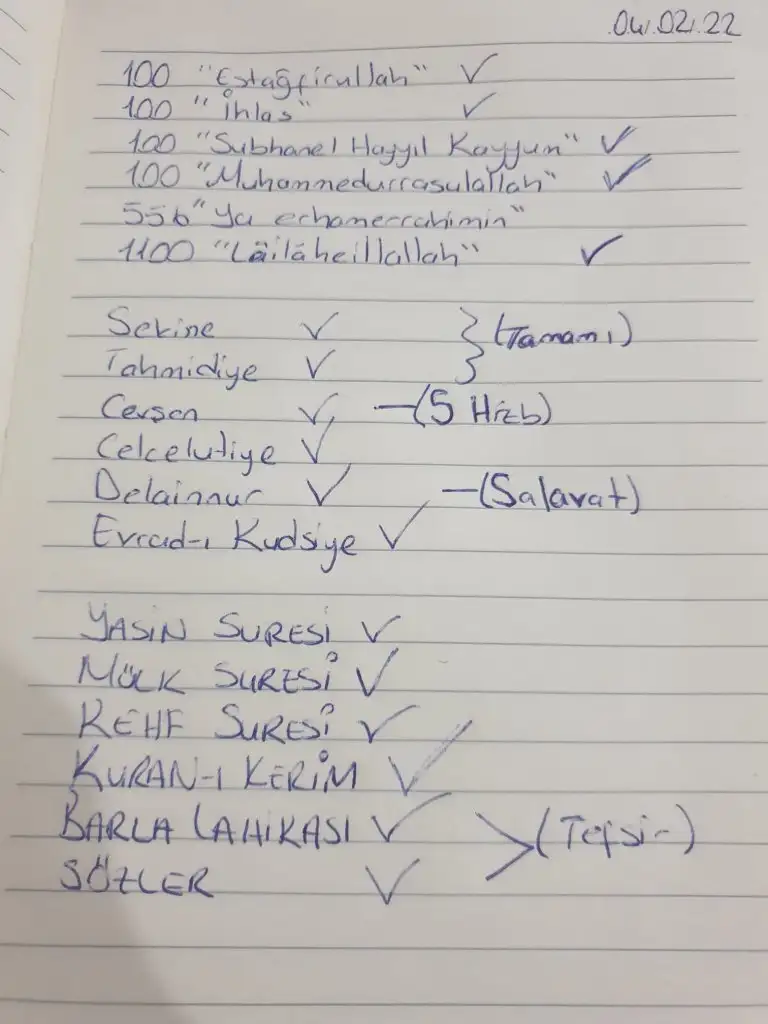 04.02.22
100 "Estağfirullah" ✓
100 "İhlas" ✓
100 "Subhanel Hayyıl Kayyum" ✓
100 "Muhammedurrasulallah" ✓
556 "Ya erhamerrahimin"
1100 "Lâilâheillallah" ✓
Sekine ✓ } (Tamamı)
Tahmidiye ✓
Cevşen ✓ —(5 Hizb)
Celcelutiye ✓
Delainnur ✓ —(Salavat)
Evrad-ı Kudsiye ✓
YASİN SURESİ ✓
MÜLK SURESİ ✓
KEHF SURESİ ✓
KURAN-I KERİM ✓
BARLA LAHİKASI ✓ > (Tefsir)
SÖZLER ✓